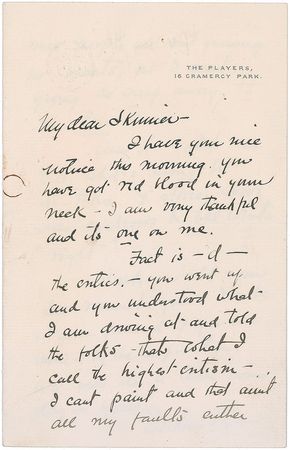 THE PLAYERS,
16 GRAMERCY PARK.
My dear Skinner -
I have your nice
notice this morning. you
have got red blood in your
neck - I am very thankful
and its one on me.
Fact is - d -
the critics. - you went up
and you understood what
I am driving at and told
the folks - thats what I
call the highest critism - . .
I cant paint and that aint
all my faults euther